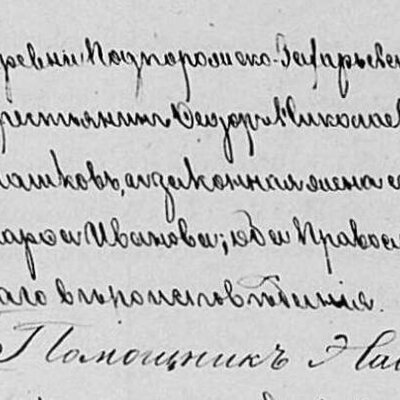 ревни Подпоромско-Захарьевс
рестьянинъ Ѳеодоръ Николаев
лашковъ, и законная жена е
Иванова; оба Правос
аго вѣроисповѣданія.
Помощникъ На